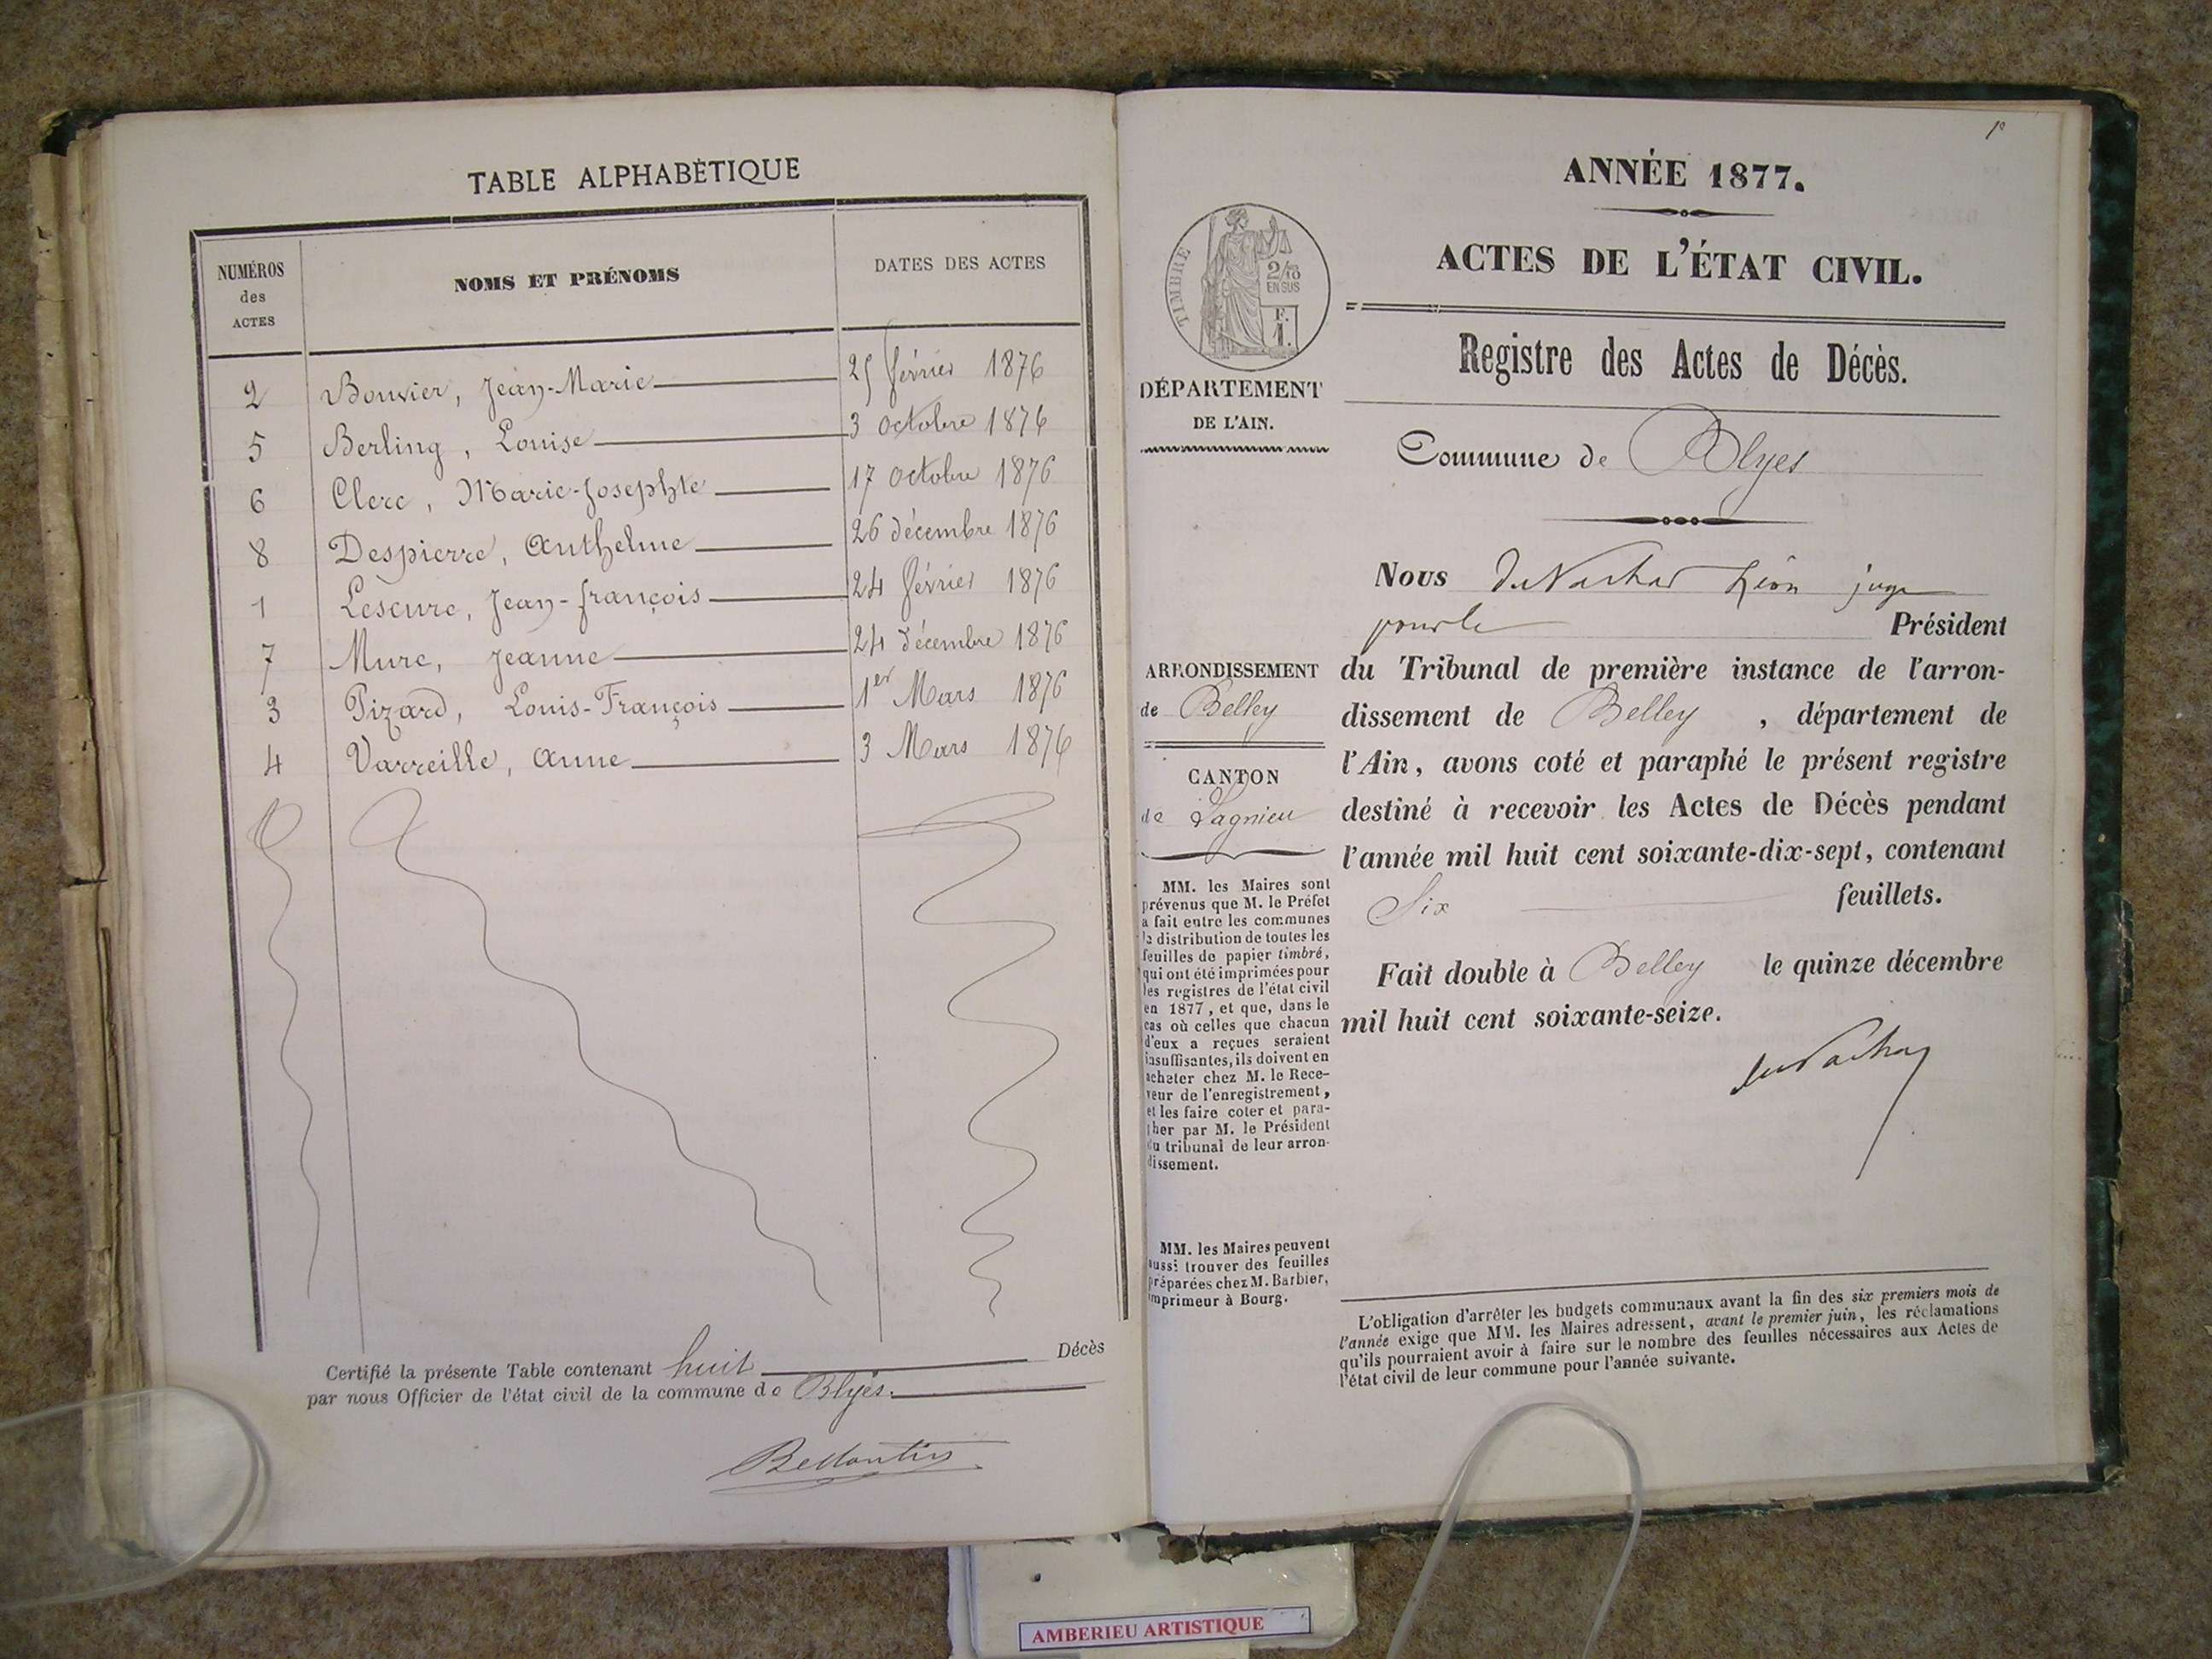 TABLE ALPHABÉTIQUE
NUMÉROS des ACTES
NOMS ET PRÉNOMS
DATES DES ACTES
2 Bouvier, Jean-Marie 25 février 1876
5 Berling, Louise 3 Octobre 1876
6 Clerc, Marie-Josephte 17 Octobre 1876
8 Despierre, Anthelme 26 décembre 1876
1 Lescure, Jean-François 24 février 1876
7 Mure, Jeanne 24 décembre 1876
3 Pizard, Louis-François 1er Mars 1876
4 Varreille, Anne 3 Mars 1876
Certifié la présente Table contenant huit Décès
par nous Officier de l'état civil de la commune de Blyes.
1e
ANNÉE 1877.
ACTES DE L'ÉTAT CIVIL.
Registre des Actes de Décès.
Commune de Blyes
TIMBRE
2/10 EN SUS
F. 1.
DÉPARTEMENT
DE L'AIN.
ARRONDISSEMENT
de Belley
CANTON
de Lagnieu
MM. les Maires sont
prévenus que M. le Préfet
a fait entre les communes
la distribution de toutes les
feuilles de papier timbré,
qui ont été imprimées pour
les registres de l'état civil
en 1877, et que, dans le
cas où celles que chacun
d'eux a reçues seraient
insuffisantes, ils doivent en
acheter chez M. le Rece-
veur de l'enregistrement,
et les faire coter et para-
pher par M. le Président
du tribunal de leur arron-
dissement.
MM. les Maires peuvent
aussi trouver des feuilles
préparées chez M. Barbier,
imprimeur à Bourg.
Nous Léon juge
pour le Président
du Tribunal de première instance de l'arron-
dissement de Belley, département de
l'Ain, avons coté et paraphé le présent registre
destiné à recevoir les Actes de Décès pendant
l'année mil huit cent soixante-dix-sept, contenant
Six feuillets.
Fait double à Belley le quinze décembre
mil huit cent soixante-seize.
L'obligation d'arrêter les budgets communaux avant la fin des six premiers mois de
l'année exige que MM. les Maires adressent, avant le premier juin, les réclamations
qu'ils pourraient avoir à faire sur le nombre des feuilles nécessaires aux Actes de
l'état civil de leur commune pour l'année suivante.
AMBERIEU ARTISTIQUE